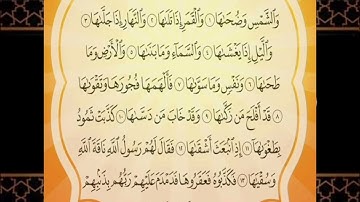 وَالشَّمْسِ وَضُحَىٰهَا ١ وَالْقَمَرِ إِذَا تَلَىٰهَا ٢ وَالنَّهَارِ إِذَا جَلَّىٰهَا ٣
وَالَّيْلِ إِذَا يَغْشَىٰهَا ٤ وَالسَّمَاءِ وَمَا بَنَىٰهَا ٥ وَالْأَرْضِ وَمَا
طَحَىٰهَا ٦ وَنَفْسٍ وَمَا سَوَّىٰهَا ٧ فَأَلْهَمَهَا فُجُورَهَا وَتَقْوَىٰهَا
٨ قَدْ أَفْلَحَ مَن زَكَّىٰهَا ٩ وَقَدْ خَابَ مَن دَسَّىٰهَا ١٠ كَذَّبَتْ ثَمُودُ
بِطَغْوَىٰهَا ١١ إِذِ انبَعَثَ أَشْقَىٰهَا ١٢ فَقَالَ لَهُمْ رَسُولُ اللَّهِ نَاقَةَ اللَّهِ
وَسُقْيَىٰهَا ١٣ فَكَذَّبُوهُ فَعَقَرُوهَا فَدَمْدَمَ عَلَيْهِمْ رَبُّهُم بِذَنبِهِمْ